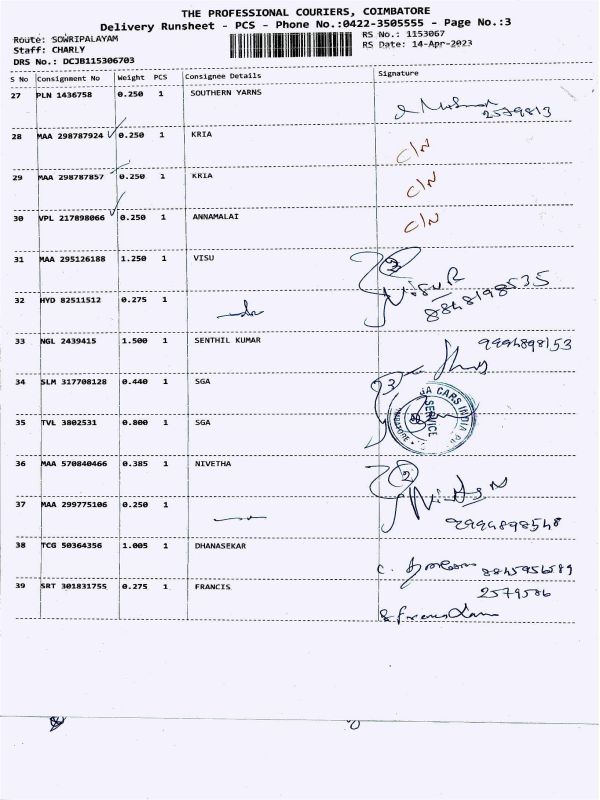 THE PROFESSIONAL COURIERS, COIMBATORE
Delivery Runsheet - PCS - Phone No.:0422-3505555 - Page No.:3
Route: SOWRIPALAYAM RS No.: 1153067
Staff: CHARLY RS Date: 14-Apr-2023
DRS No.: DCJB115306703
S No Consignment No Weight PCS Consignee Details Signature
27 PLN 1436758 0.250 1 SOUTHERN YARNS
2579813
28 MAA 298787924 0.250 1 KRIA C/N
29 MAA 298787857 0.250 1 KRIA C/N
30 VPL 217898066 0.250 1 ANNAMALAI C/N
31 MAA 295126188 1.250 1 VISU
32 HYD 82511512 0.275 1 8848198535
33 NGL 2439415 1.500 1 SENTHIL KUMAR 9994898153
34 SLM 317708128 0.440 1 SGA
35 TVL 3802531 0.800 1 SGA
CARS INDIA
SERVICE
36 MAA 570840466 0.385 1 NIVETHA
37 MAA 299775106 0.250 1 9994898548
38 TCG 50364356 1.005 1 DHANASEKAR
39 SRT 301831755 0.275 1 FRANCIS 2579586